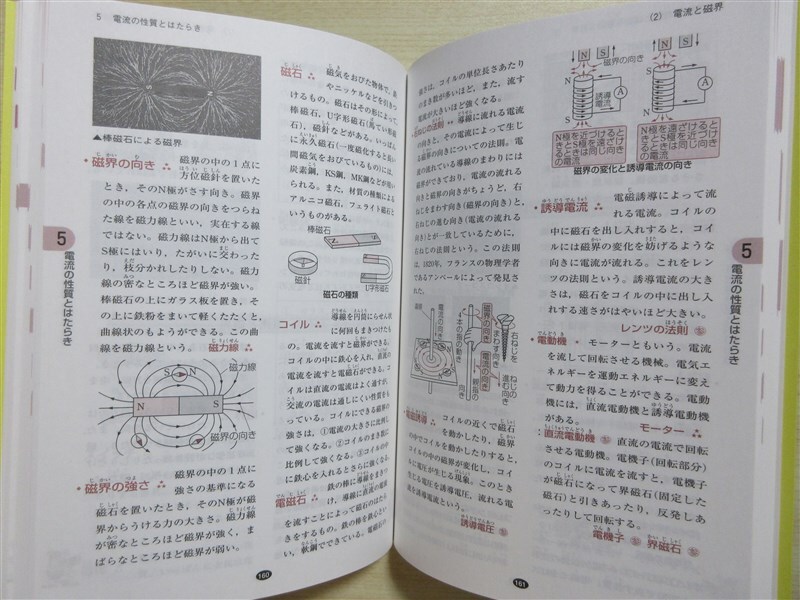 5 電流の性質とはたらき
▲棒磁石による磁界
磁界の向き
磁界の中の1点に
方位磁針を置いた
とき，そのN極がさす向き。磁界
の中の各点の磁界の向きをつらね
た線を磁力線といい，実在する線
ではない。磁力線はN極から出て
S極にはいり，たがいに交わった
り，枝分かれしたりしない。磁力
線の密なところほど磁界が強い。
棒磁石の上にガラス板を置き，そ
の上に鉄粉をまいて軽くたたくと，
曲線状のもようができる。この曲
線を磁力線という。 磁力線
磁界の向き
磁力線
N
S
磁界の向き
磁界の強さ
磁界の中の1点に
強さの基準になる
磁石を置いたとき，そのN極が磁
界からうける力の大きさ。磁力線
が密なところほど磁界が強く，ま
ばらなところほど磁界が弱い。
5
電流の性質とはたらき
磁石
磁気をおびた物体で，鉄
やニッケルなどを引きつ
けるもの。磁石はその形によって，
棒磁石，U字形磁石(馬てい形磁
石)，磁針などがある。いっぱん
に永久磁石(一度磁化すると長い
間磁気をおびているもの)には，
炭素鋼，KS鋼，MK鋼などが用い
られる。また，材質の種類による
アルニコ磁石，フェライト磁石と
いうものがある。
棒磁石
磁針
U字形磁石
磁石の種類
コイル
導線を円筒にらせん状
に何回もまきつけたも
の。電流を流すと磁界ができる。
コイルの中に鉄心を入れ，直流の
電流を流すと電磁石ができる。コ
イルは直流の電流はよく通すが，
交流の電流は通しにくい性質をも
っている。コイルにできる磁界の
強さは，①電流の大きさに比例し
て強くなる。②コイルのまき数に
比例して強くなる。③コイルの中
に鉄心を入れるとさらに強くなる。
電磁石
鉄の棒に導線をまきつ
け，導線に直流の電流
を流すことによって磁石のはたら
きをするもの。鉄の棒を鉄心とい
い，軟鋼でできている。電磁石の
160
(2) 電流と磁界
強さは，コイルの単位長さあたり
のまき数が多いほど，また，流す
電流が大きいほど強くなる。
右ねじの法則
導線に流れる電流
の向きと，その電流によって生じ
る磁界の向きについての法則。電
流の流れている導線のまわりには
磁界ができており，電流の流れる
向きと磁界の向きがちょうど，右
ねじをまわす向き(磁界の向き)と，
右ねじの進む向き(電流の流れる
向き)とが一致しているために，
右ねじの法則という。この法則
は，1820年，フランスの物理学者
であるアンペールによって発見さ
れた。
電流の向き
磁界の向き
4本の指の向き
電流の向き
親指の向き
右ねじをまわす向き
ねじの進む向き
電磁誘導
コイルの近くで磁石
を動かしたり，磁界
の中でコイルを動かしたりすると，
コイルの中の磁界が変化し，コイ
ルに電圧が生じる現象。このとき
生じる電圧を誘導電圧，流れる電
流を誘導電流という。
誘導電圧
N
S
磁界の向き
S
N
誘導電流
N極を近づけると
きとS極を遠ざけ
るときは同じ向き
の電流
N極を遠ざけると
きとS極を近づけ
るときは同じ向き
の電流
磁界の変化と誘導電流の向き
誘導電流
電磁誘導によって流
れる電流。コイルの
中に磁石を出し入れすると，コイ
ルには磁界の変化を妨げるような
向きに電流が流れる。これをレン
ツの法則という。誘導電流の大き
さは，磁石をコイルの中に出し入
れする速さがはやいほど大きい。
レンツの法則
電動機
モーターともいう。電流
を流して回転させる機械。電気エ
ネルギーを運動エネルギーに変え
て動力を得ることができる。電動
機には，直流電動機と誘導電動機
がある。
モーター
直流電動機
直流の電流で回転
させる電動機。電機子(回転部分)
のコイルに電流を流すと，電機子
が磁石になって界磁石(固定した
磁石)と引きあったり，反発しあ
ったりして回転する。
電機子 界磁石
5
電流の性質とはたらき
161